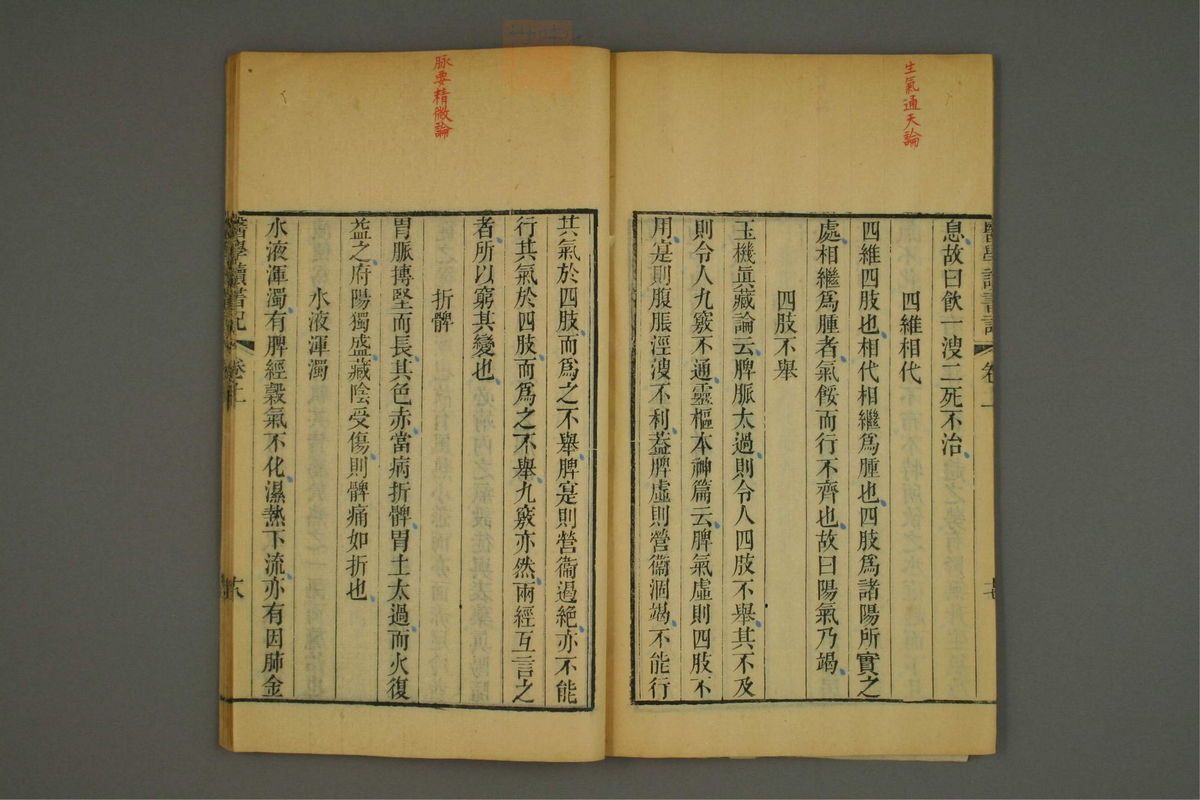 生氣通天論
息故曰飲一溲二死不治
四維相代
四維四肢也相代相繼爲腫也四肢爲諸陽所實之
處相繼爲腫者氣餒而行不齊也故曰陽氣乃竭
四肢不舉
玉機眞藏論云脾脈太過則令人四肢不舉其不及
則令人九竅不通靈樞本神篇云脾氣虛則四肢不
用寔則腹脹涇溲不利葢脾虛則營衞涸竭不能行
脉要精微論
其氣於四肢而爲之不舉脾寔則營衞遏絶亦不能
行其氣於四肢而爲之不舉九竅亦然兩經互言之
者所以窮其變也
折髀
胃脈搏堅而長其色赤當病折髀胃土太過而火復
葢之府陽獨盛藏陰受傷則髀痛如折也
水液渾濁
水液渾濁有脾經穀氣不化濕熱下流亦有因肺金
醫學讀書記 卷上